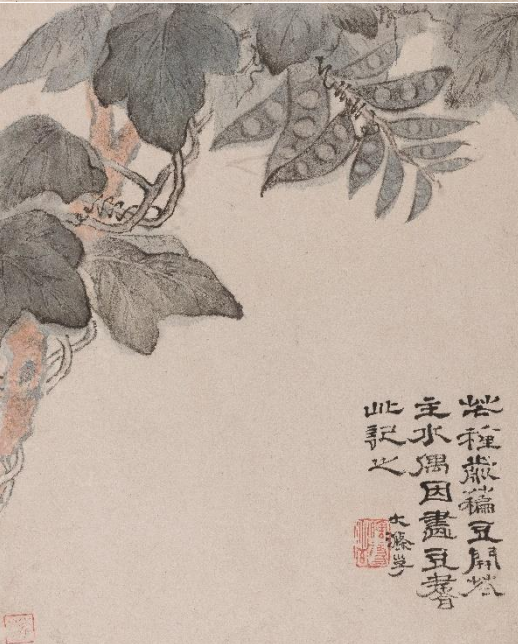 芒種歲藊豆開花
主水偶因畫豆書
此記之
大滌